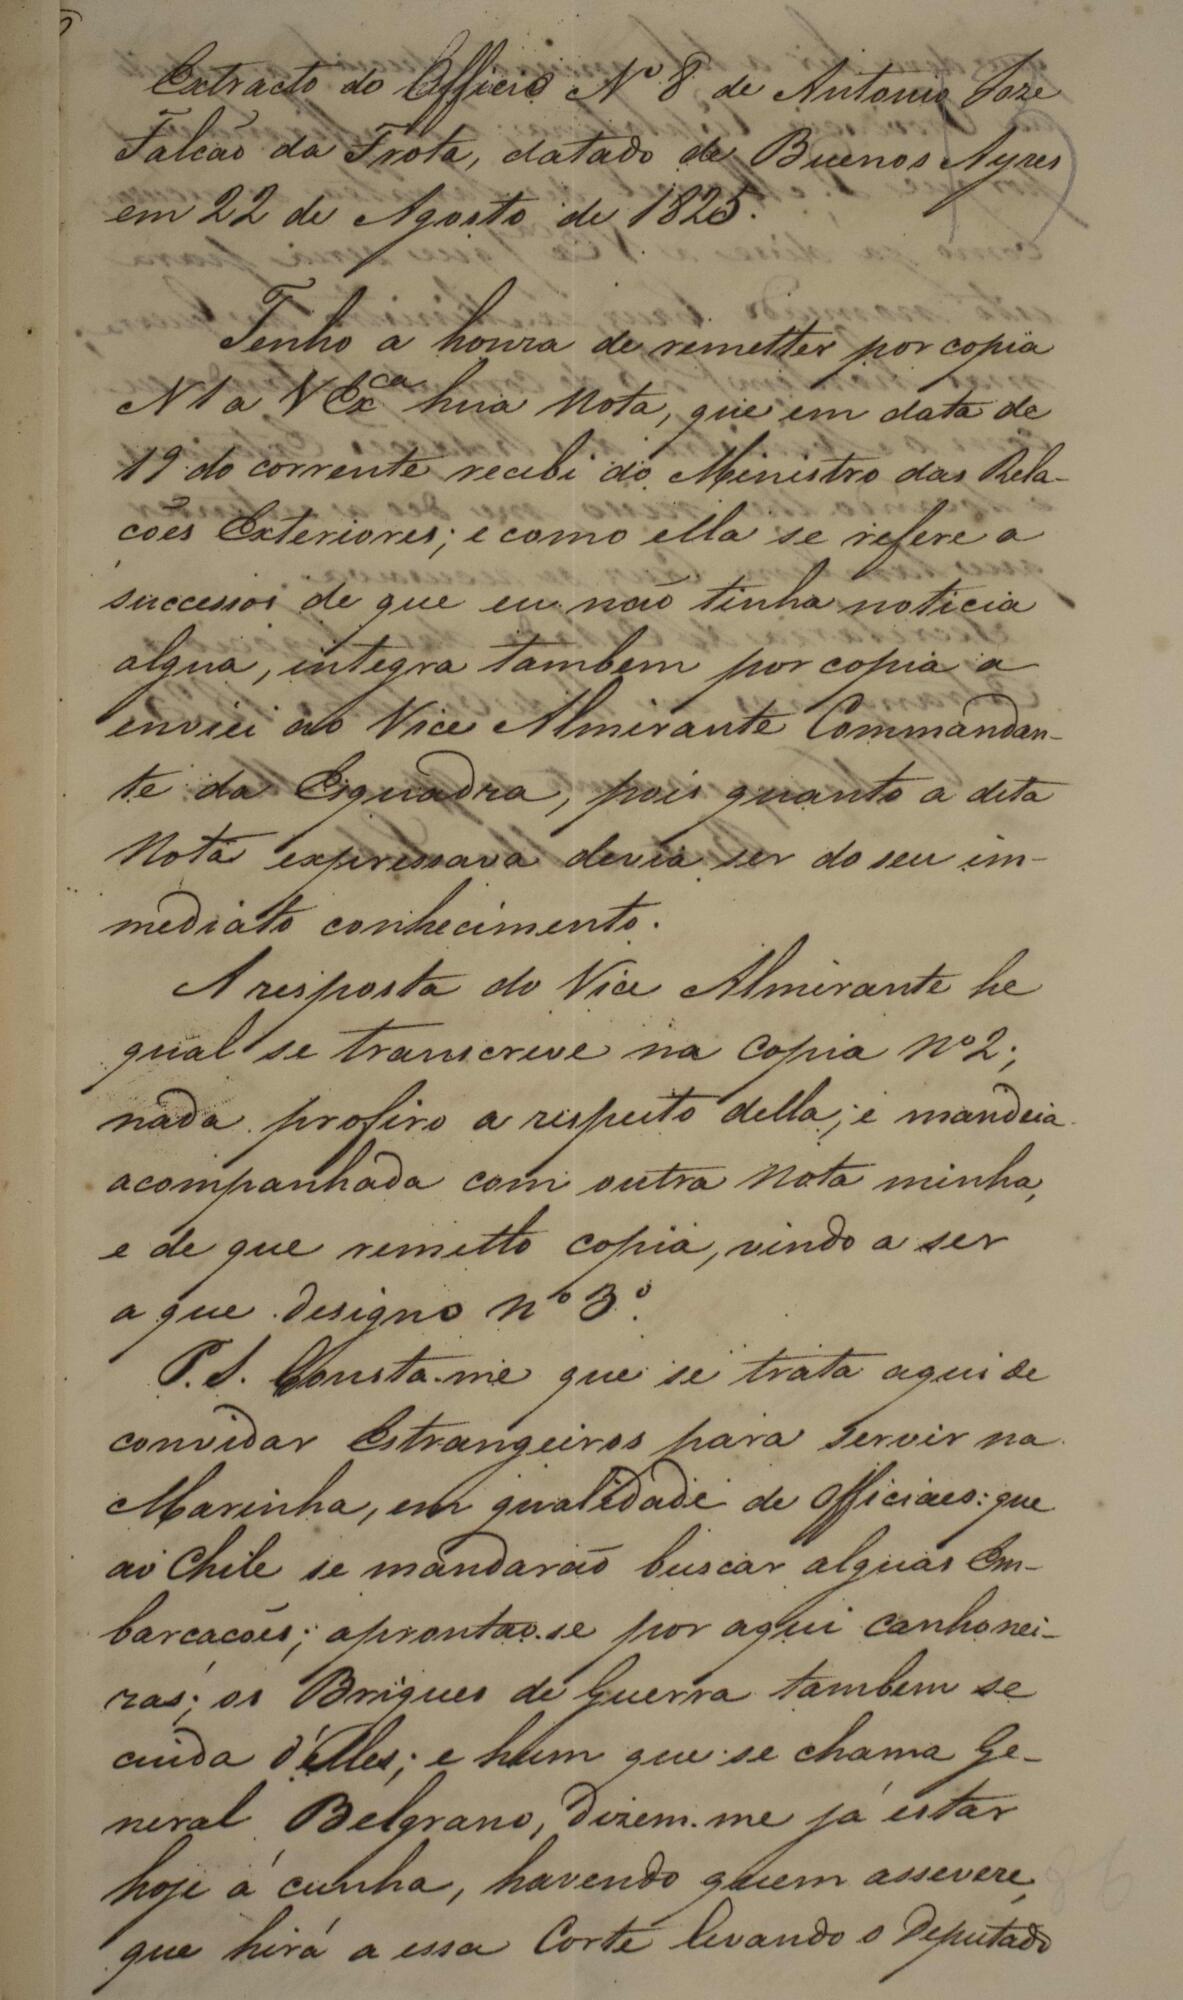 Extracto do Officio Nº 8 de Antonio Joze
Falcão da Frota, datado de Buenos Ayres
em 22 de Agosto de 1825.
Tenho a honra de remetter por copia
N 1 a V Exca hua Nota, que em data de
19 do corrente recebi do Ministro das Rela-
cões Exteriores; e como ella se refere a
successos de que eu não tinha noticia
algua, integra tambem por copia a
enviei ao Vice Almirante Commandan-
te da Esquadra, pois quanto a dita
Nota expressava devia ser do seu im-
mediato conhecimento.
A resposta do Vice Almirante he
qual se transcreve na Copia Nº 2;
nada profiro a respeito della; e mandeia
acompanhada com outra Nota minha,
e de que remetto copia, vindo a ser
a que designo Nº 3º.
P. S. Consta-me que se trata aqui de
convidar Estrangeiros para servir na
Marinha, em qualidade de Officiaes: que
ao Chile se mandarão buscar alguas Em-
barcacões; aprontão-se por aqui canhonei-
ras; os Brigues de Guerra tambem se
cuida d'élles; e hum que se chama Ge-
neral Belgrano, dizem-me já estar
hoje á cunha, havendo quem assevere,
que hirá a essa Corte levando o Deputado